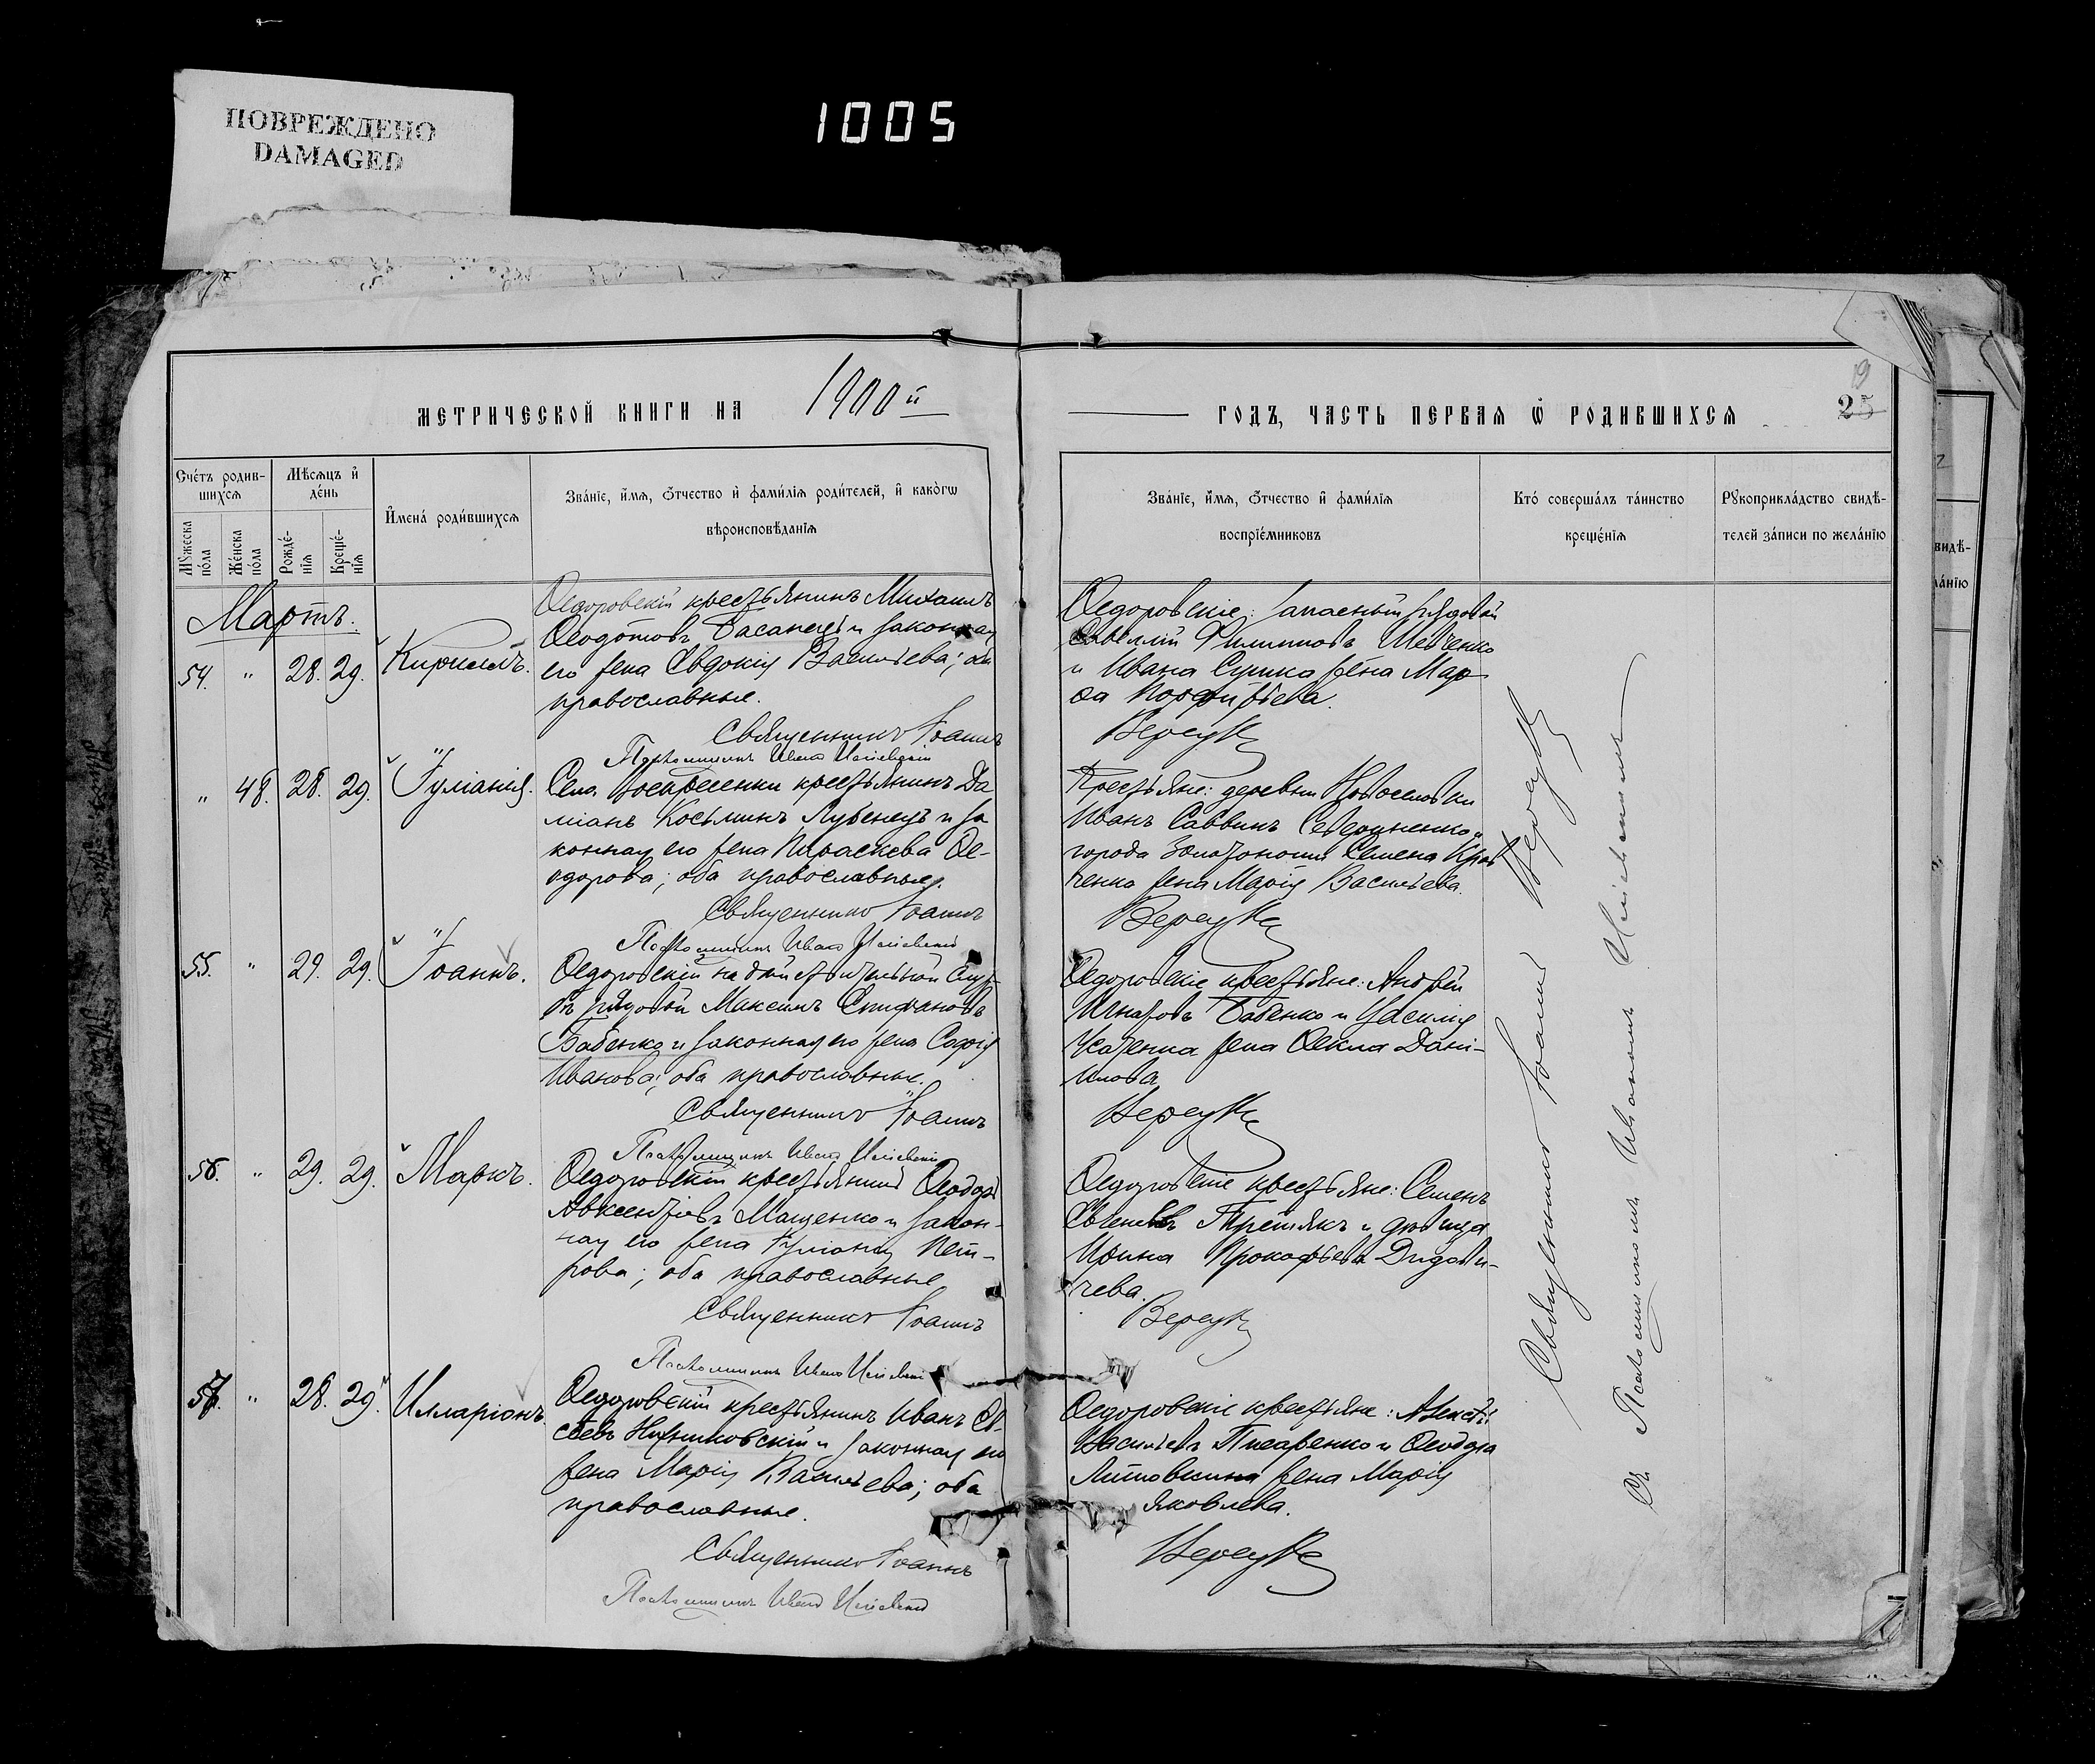 ПОВРЕЖДЕНО
DAMAGED
1005
МЕТРИЧЕСКОЙ КНИГИ НА 1900й
ГОДЪ, ЧАСТЬ ПЕРВАЯ Ѿ РОДИВШИХСЯ
19
25
Счетъ родив-
шихся
Мѣсяцъ и
день
Мужеска
пола
Женска
пола
Рожде-
нія
Креще-
нія
Имена родившихся
Званіе, имя, отчество и фамилія родителей, и какогѡ
вѣроисповѣданія
Званіе, имя, отчество и фамилія
воспріемниковъ
Кто совершалъ таинство
крещенія
Рукоприкладство свидѣ-
телей записи по желанію
Мартъ.
54. " 28. 29. Кириллъ.
Ѳедоровскій крестьянинъ Михаилъ
Ѳеодотовъ Басанецъ и законная
его жена Евдокія Васильева; оба
православные.
Священникъ Іоаннъ
Псаломщикъ Иванъ
Ѳедоровскіе: запасный рядовой
Савелій Филиповъ Шевченко
и Ивана Сушка жена Мар-
ѳа Порфирьева.
" 48. 28. 29. Іуліанія.
Села Воскресенки крестьянинъ Да
міанъ Косьминъ Лубенецъ и за
конная его жена Параскева Ѳе-
одорова; оба православные.
Священникъ Іоаннъ
Псаломщикъ Иванъ
Крестьяне: деревни Новоселовки
Иванъ Саввинъ Севериненко и
города Золотоноши Семена Крав
ченка жена Марія Васильева.
55. " 29. 29. Іоаннъ.
Ѳедоровскій на дѣйствительной служ-
бѣ рядовой Максимъ Епифановъ
Бабенко и законная его жена Софія
Иванова; оба православные.
Священникъ Іоаннъ
Псаломщикъ Иванъ
Ѳедоровскіе крестьяне: Андрей
Игнатовъ Бабенко и Василія
Усатенка жена Ѳекла Дані-
илова
56. " 29. 29. Маркъ.
Ѳедоровскій крестьянинъ Ѳеодоръ
Авксентіевъ Мащенко и закон-
ная его жена Іуліанія Пет-
рова; оба православные
Священникъ Іоаннъ
Псаломщикъ Иванъ
Ѳедоровскіе крестьяне: Семенъ
Третьякъ и дѣвица
Ирина Прокофьева
чева.
57. " 28. 29. Илларіонъ.
Ѳедоровскій крестьянинъ Иванъ Ев-
сѣевъ и законная его
жена Марія Васильева; оба
православные.
Священникъ Іоаннъ
Псаломщикъ Иванъ
Ѳедоровскіе крестьяне: Алексѣй
Васильевъ Писаренко и Ѳеодора
Литовкина жена Марія
Яковлева.
Священникъ Іоаннъ
Съ Псаломщикомъ Иваномъ